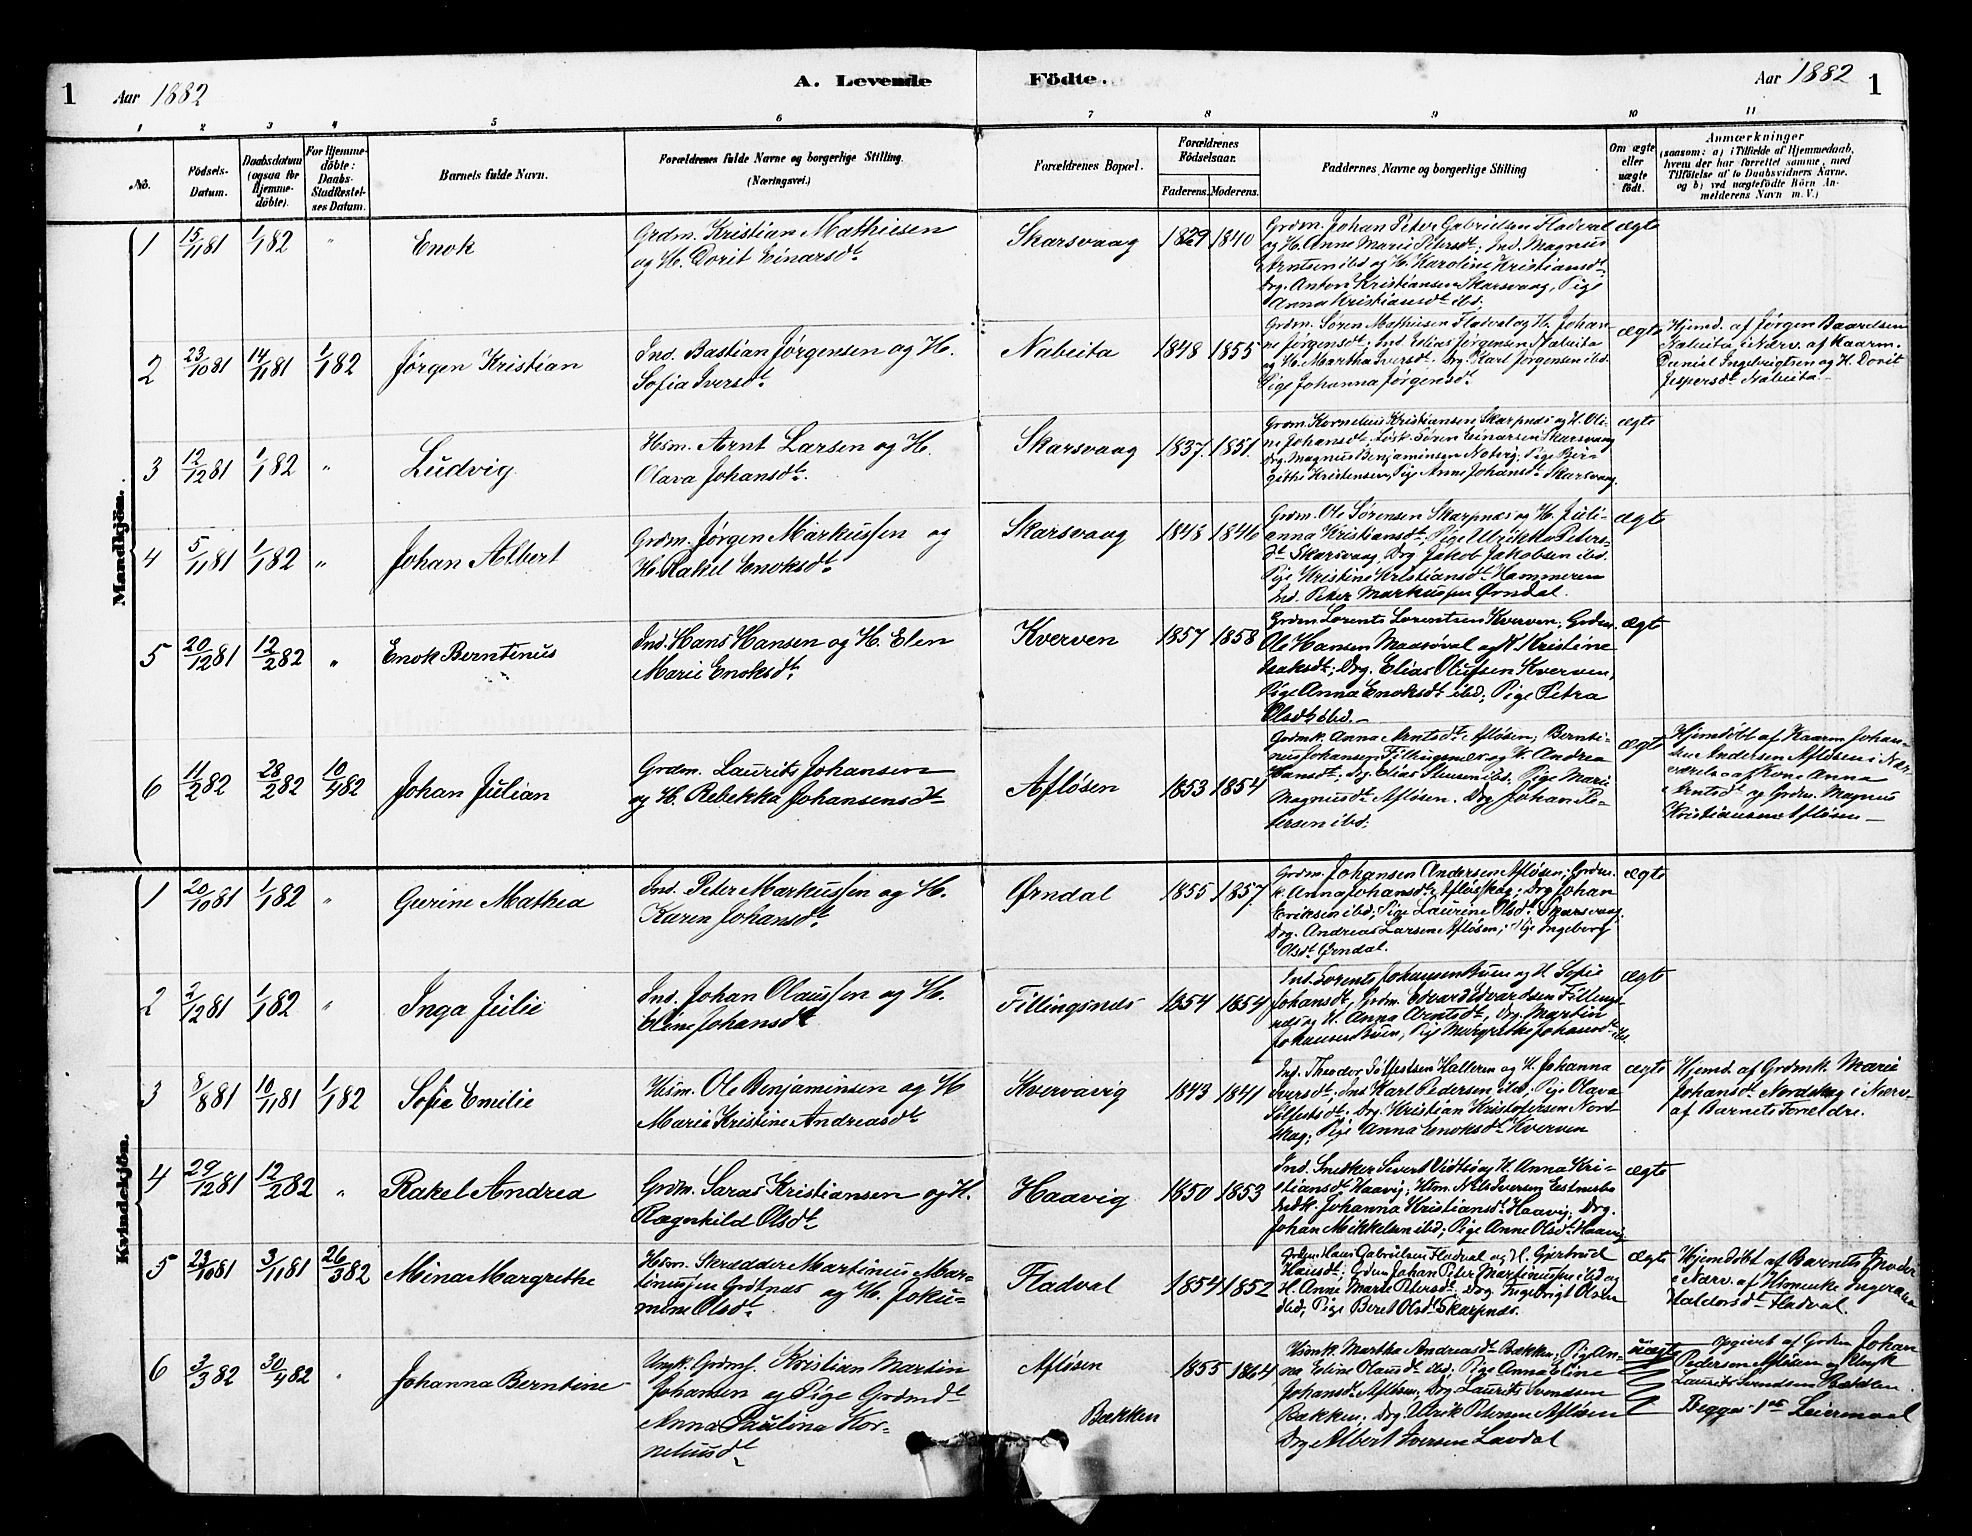 1 Aar 1882 A. Levende Födte. Aar 1882 1
1 2 3 4 5 6 7 8 9 10 11
No. Födsels-Datum. Daabsdatum (ogsaa for Hjemme-döbte). For Hjemme-döbte: Daabs-Stadfæstelses Datum. Barnets fulde Navn. Forældrenes fulde Navne og borgerlige Stilling. (Næringsvei.) Forældrenes Bopæl. Forældrenes Födselsaar. Faderens. Moderens. Faddernes Navne og borgerlige Stilling Om ægte eller uægte födt. Anmærkninger (saasom: a) i Tilfælde af Hjemmedaab, hvem der har forrettet samme, med Tilföielse af to Daabsvidners Navne, og b) ved uægtefödte Börn Anmelderens Navn m. V.)
Mandkjön.
1 15/11 81 1/1 82 " Enok
Grdm. Kristian Mathiesen
og H. Dorit Einarsdt
Skarsvaag 1829 1840
Grdm. Johan Peter Gabrielsen Fladval
og H. Anne Marie Petersdt; Ind. Magnus
Arntsen ibd og H. Karoline Kristiansdt;
Drg. Anton Kristiansen Skarsvaag, Pige
Anna Kristiansdt ibd.
ægte
2 23/10 81 14/11 81 1/1 82 Jørgen Kristian
Ind. Bastian Jørgensen og H.
Sofia Iversdt
Nabeita 1848 1855
Grdm. Søren Mathiesen Fladval og H. Johan-
ne Jørgensdt; Ind. Elias Jørgensen Nabeita
og H. Martha Iversdt. Drg. Karl Jørgensen ibd.
Pige Johanna Jørgensdt
ægte
Hjemd. af Jørgen Baardsen
Nabeita i Nærv. af Kaarm.
Daniel Ingebrigtsen og H. Dorit
Jespersdt Nabeita
3 12/12 81 1/1 82 " Ludvig
Hsm. Arnt Larsen og H.
Olava Johansdt.
Skarsvaag 1837 1851
Grdm. Kornelius Kristiansen Skarpnæs og H. Oli-
ne Johansdt. Søren Einarsen Skarsvaag
Drg. Magnus Benjaminsen; Pige Bir-
githe Kristensen, Pige Anne Johansdt Skarsvaag.
ægte
4 5/11 81 1/1 82 " Johan Albert
Grdm. Jørgen Markussen og
H. Rakel Enoksdt
Skarsvaag 1843 1846
Grdm. Ole Sørensen Skarpnæs og H. Juli-
anna Kristiansdt; Pige Ulrikke Peters-
dt Skarsvaag, Drg Jakob Jakobsen ibd.
Pige Kristine Kristiansdt Hammeren
Ind. Peter Markussen Ørndal.
ægte
5 20/12 81 12/2 82 " Enok Berntinus
Ind. Hans Hansen og H. Elen
Marie Enoksdt.
Kverven 1857 1858
Grdm Lorents Lorentsen Kverven; Grdm.
Ole Hansen Maasøval og H. Kristine
Isaksdt; Drg. Elias Olufsen Kverven,
Pige Anna Enoksdt ibd; Pige Petra
Olsdt ibd.
ægte
6 11/2 82 28/2 82 10/4 82 Johan Julian
Grdm. Laurits Johansen
og H. Rebekka Johansensdt
Afløsen 1853 1854
Grdmk. Anna Arntsdt Afløsen; Bernti-
nus Johansen Fillingsnes og H. Andrea
Hansdt; Drg Elias ibd. Pige Mari
Magnusdt Afløsen. Drg Johan Pe-
tersen ibd.
ægte
Hjemdøbt af Kaarm Johan-
sen Andersen Afløsen i Nær-
værelse af Kone Anna
Arntsdt og Grdm. Magnus
Kristiansen Afløsen
Kvindekjön.
1 20/10 81 1/1 82 " Gurine Mathea
Ind. Peter Markussen og H.
Karen Johansdt
Ørndal 1855 1857
Grdm. Johansen Andersen Afløsen; Grdm.
k. Anna Johansdt; Drg Johan
Eriksen ibd; Pige Laurine Olsdt Skarsvaag;
Drg. Andreas Larsen Afløsen; Pige Ingeborg
Olsdt Ørndal.
ægte
2 3/12 81 1/1 82 " Inga Julie
Ind. Johan Olaussen og H.
Eline Johansdt
Fillingsnæs 1854 1854
Ind. Lorents Johansen Buen og H. Sofie
Johansdt, Grdm. Edvard Edvardsen Fillings-
næs og H. Anna Arntsdt, Drg. Martin
Johansen Buen, Pige Margrethe Johansdt ibd.
ægte
3 8/8 81 10/11 81 1/1 82 Sofie Emilie
Hsm. Ole Benjaminsen og H
Marie Kristine Andreasdt
Kvervavig 1843 1841
Ind. Theodor Tølfestsen Halleren og H. Johanna
Iversdt; Ind. Karl Pedersen ibd, Pige Olava
Tølfestsdt; Drg. Kristian Kristofersen Nord-
skag; Pige Anna Enoksdt Kverven
ægte
Hjemd af Grdmk. Marie
Johansdt Nordskag i Nærv.
af Barnets Forældre.
4 29/12 81 12/2 82 " Rakel Andrea
Grdm. Saras Kristiansen og H.
Ragnhild Olsdt
Haavig 1850 1853
Ind. Snedker Sivert og H. Anna Kri-
stiansdt Haavig; Hsm. Nils Iversen
Johanna Kristiansdt Haavig; Drg.
Johan Mikkelsen ibd; Pige Anne Olsdt Haavig
ægte
5 23/10 81 3/11 81 26/3 82 Mina Margrethe
Hsm. Skrædder Martinus Mar-
tinussen og H. Joku-
mine Olsdt
Fladval 1854 1852
Grdm Hans Gabrielsen Fladval og H. Gjertrud
Hansdt; Grdm Johan Peter Martinussen ibd og
H. Anne Marie Petersdt; Drg. Ingebrigt Olsen
ibd; Pige Beret Olsdt Skarpnæs.
ægte
Hjemdøbt af Barnets Moder
i Nærv. af Hsmenke Ingeranna
Haldorsdt Fladval.
6 3/3 82 30/4 82 " Johanna Berntine
Ungk. Grdms. Kristian Martin
Johansen og Pige Grdmdt
Anna Paulina Kor-
neliusdt
Afløsen
Bækken
1855 1864
Hsmk. Martha Andreasdt Bækken, Pige An-
na Eline Olausdt ibd; Pige Anna Eline
Johansdt Afløsen; Drg Laurits Svendsen
Bækken; Drg Ulrik Petersen Afløsen
Drg Albert Iversen Lavdal
uægte
opgivet af Grdm Johan
Pedersen Afløsen og Ungk
Laurits Svendsen Bækken.
Begges 1ste Leiermaal